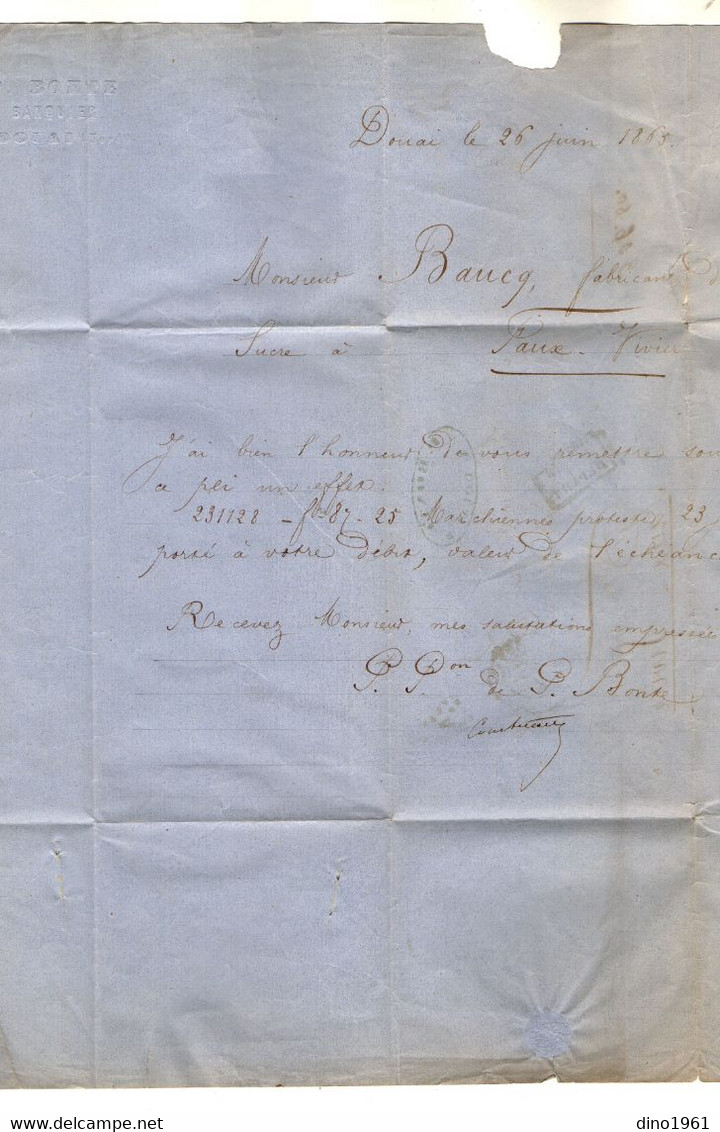 BONTE
BANQUIER
DOUAI
Douai le 26 juin 1865.
Monsieur Baucq, fabricant d
Sucre à Vaux-Vivier
J'ai bien l'honneur de vous remettre sou
ce pli un effet:
231128 - fcs 87-25 Marchiennes protesté, 23
porté à votre débit, valeur de l'échéanc
Recevez Monsieur, mes salutations empressée
P. Pon de P. Bonte,
dino1961